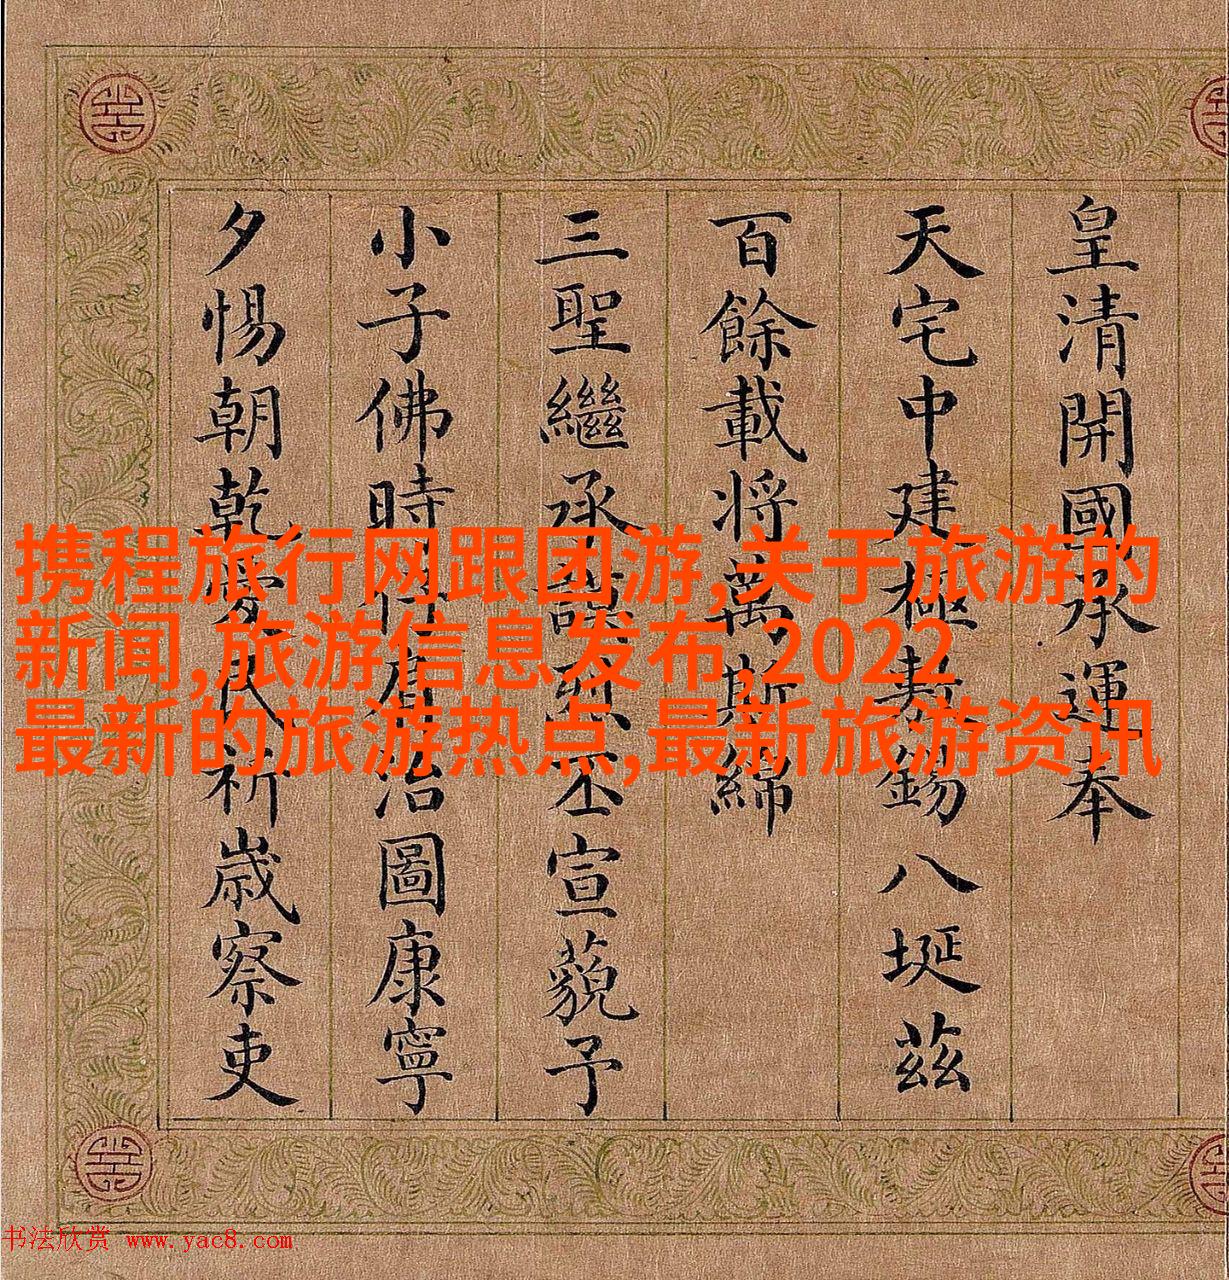 皇清開國承運奉
天宅中建極敷錫八埏茲
百餘載將萬斯綿
三聖繼承謨烈丕宣藐予
小子佛時仔肩治圖康寧
夕惕朝乾愛民祈歲察吏
携程旅行网跟团游,关于旅游的
新闻,旅游信息发布,2022
最新的旅游热点,最新旅游资讯
书法欣赏 www.yac8.com